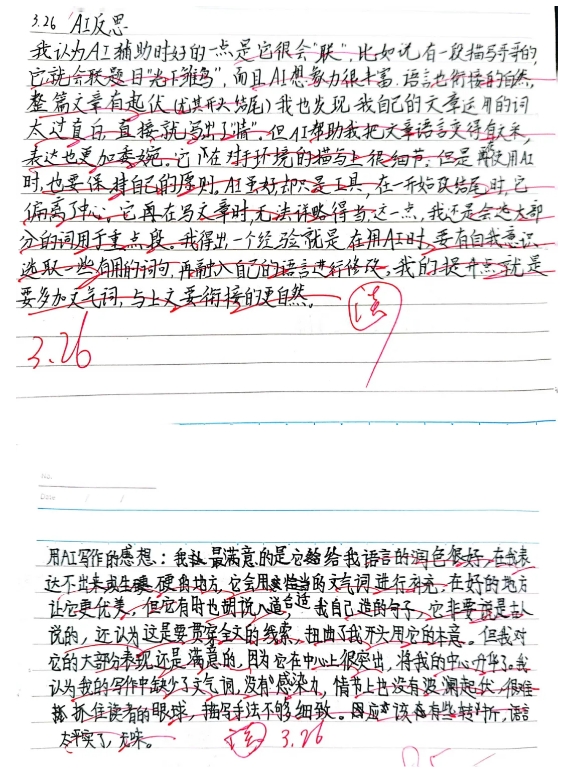 3.26 AI反思
我认为AI辅助时好的一点是它很会"联",比如说有一段描写手哥的,
它就会联题目"光下雏鸟",而且AI想象力很丰富,语言也衔接的自然,
整篇文章有起伏(尤其开头结尾)我也发现我自己的文章运用的词
太过直白,直接就写出了"情",但AI帮助我把文章语言变得有文采,
表达也更加委婉,它在对手环境的描写上很细节,但是再使用AI
时,也要保持自己的原则,AI虽好却只是工具,在一开始及结尾时,它
偏离了中心,它再在写文章时,无法详略得当,这一点,我还是会选大部
分的词用于重点段。我得出一个经验就是在用AI时,要有自我意识
选取一些有用的词句,再融入自己的语言进行修改,我的提升点就是
要多加文气词,与上文要衔接的更自然。
读
3.26
No.
Date / /
用AI写作的感想:我认最满意的是它给我语言的润色很好,在我表
达不出来或生硬的地方,它会用恰当的文气词进行补充,在好的地方
让它更优美,但它有时也胡说八道,我自己造的句子,它非要说是古人
说的,还认为这是要贯穿全文的线索,扭曲了我开头用它的本意。但我对
它的大部分表现还是满意的,因为它在中心上很突出,将我的中心升华了。我
认为我的写作中缺少了文气词,没有感染力,情节上也没有波澜起伏,很难
抓住读者的眼球,描写手法不够细致。因应该有些转折,语言
太平实了,无味。
读 3.26